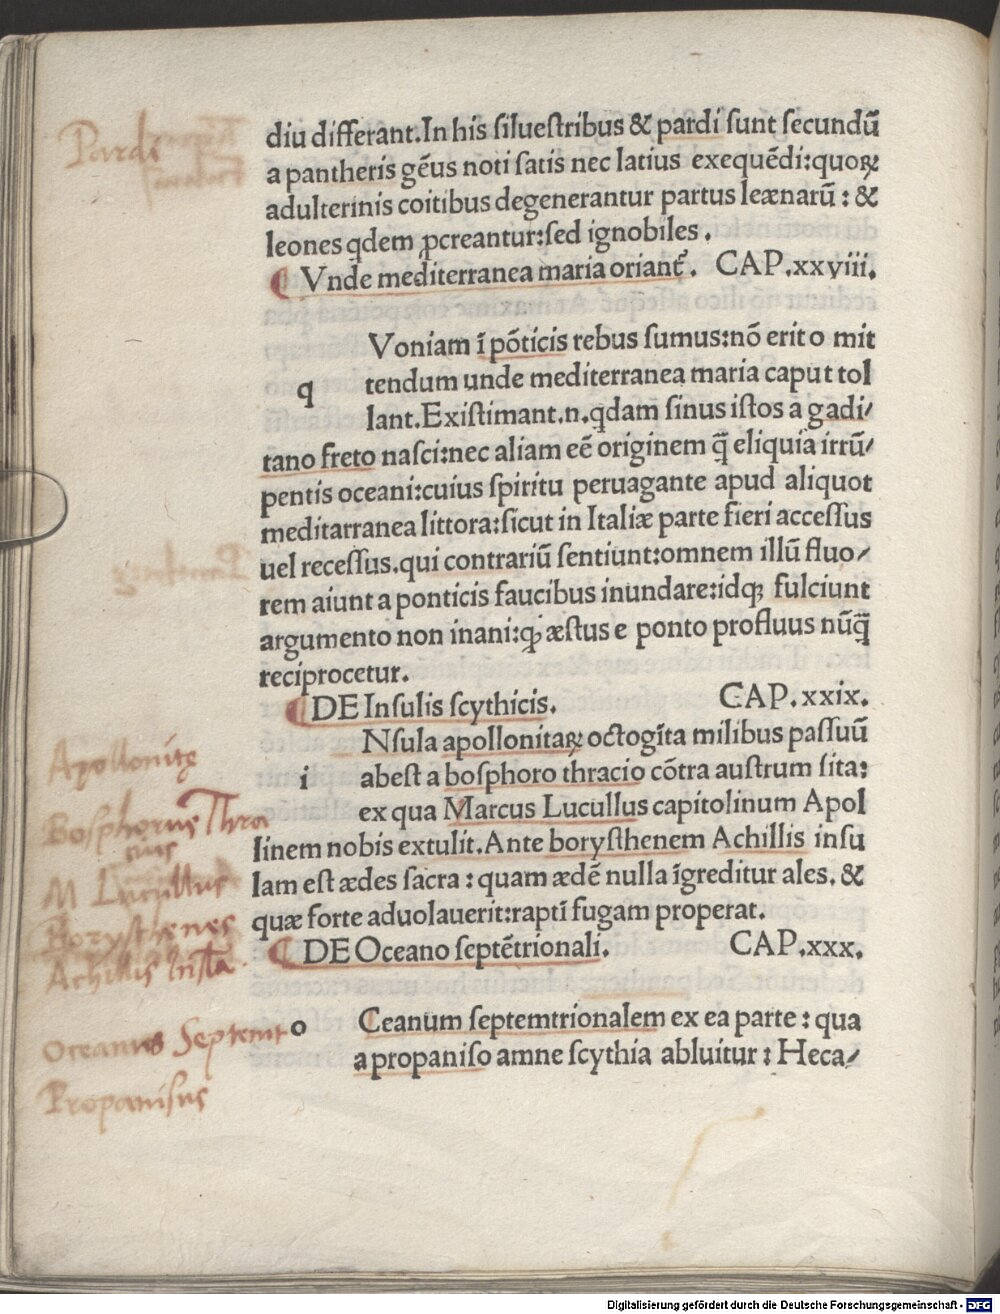 diu differant.In his silueſtribus & pardi ſunt ſecundū
a pantheris gēus noti ſatis nec latius exequēdi:quoꝝ
adulterinis coitibus degenerantur partus leænarū : &
leones qdem ꝓcreantur:ſed ignobiles .
Vnde mediterranea maria oriant᷑. CAP.xxviii.
Voniam ī pōticis rebus ſumus:nō erit o mit
q tendum unde mediterranea maria caput tol
lant.Exiſtimant.n.qdam ſinus iſtos a gadi/
tano freto naſci:nec aliam eē originem q̄ eliquia irrū/
pentis oceani:cuius ſpiritu peruagante apud aliquot
meditarranea littora:ſicut in Italiæ parte fieri acceſſus
uel receſſus.qui contrariū ſentiunt:omnem illū fluo/
rem aiunt a ponticis faucibus inundare:idqꝫ fulciunt
argumento non inani:ꝙ æſtus e ponto profluus nūq̄
reciprocetur.
DE Inſulis ſcythicis. CAP.xxix.
Nſula apollonitaꝝ octogīta milibus paſſuū
i abeſt a boſphoro thracio cōtra auſtrum ſita:
ex qua Marcus Lucullus capitolinum Apol
linem nobis extulit.Ante boryſthenem Achillis inſu
lam eſt ædes ſacra : quam ædē nulla īgreditur ales. &
quæ forte aduolauerit:raptī fugam properat.
DE Oceano ſeptētrionali. CAP.xxx.
o Ceanum ſeptemtrionalem ex ea parte : qua
a propaniſo amne ſcythia abluitur : Heca/
Pardi
Apollonitę
Bosphorus Thra
cius
M Lucullus
Borysthenes
Achillis Insła.
Oceanus Septemt
Propanisus
Digitalisierung gefördert durch die Deutsche Forschungsgemeinschaft - DFG